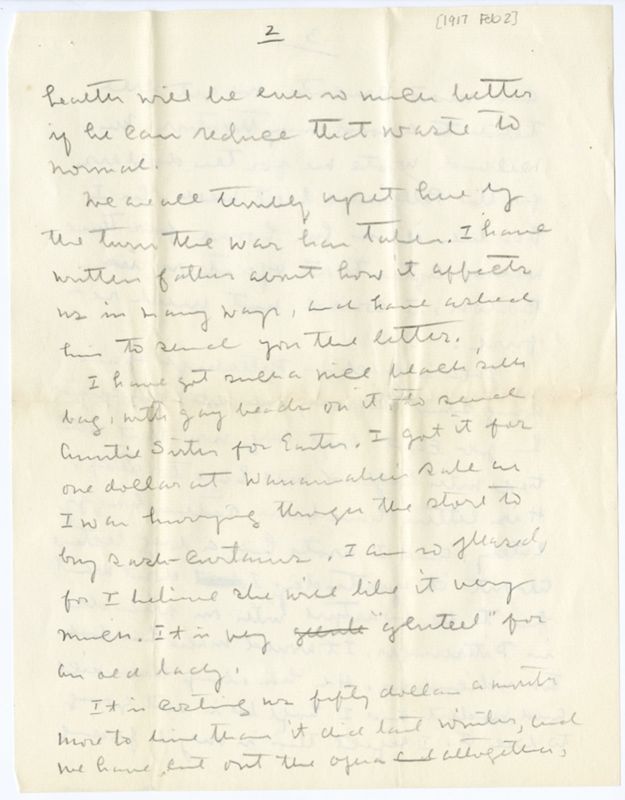 2
[1917 Feb 2]
health will be ever so much better
if he can reduce that waste to
normal.
We are all terribly upset here by
the turn the war has taken. I have
written father about how it affects
us in many ways, and have asked
him to send you the letter.
I have got such a nice black silk
bag, with gay beads on it to send
Auntie Sister for Easter. I got it for
one dollar at Wanamaker's sale as
I was hurrying through the store to
buy sash-curtains. I am so pleased,
for I believe she will like it very
much. It is very "genteel" for
an old lady.
It is costing us fifty dollars a month
more to live than it did last winter, and
we have cut out the opera altogether,